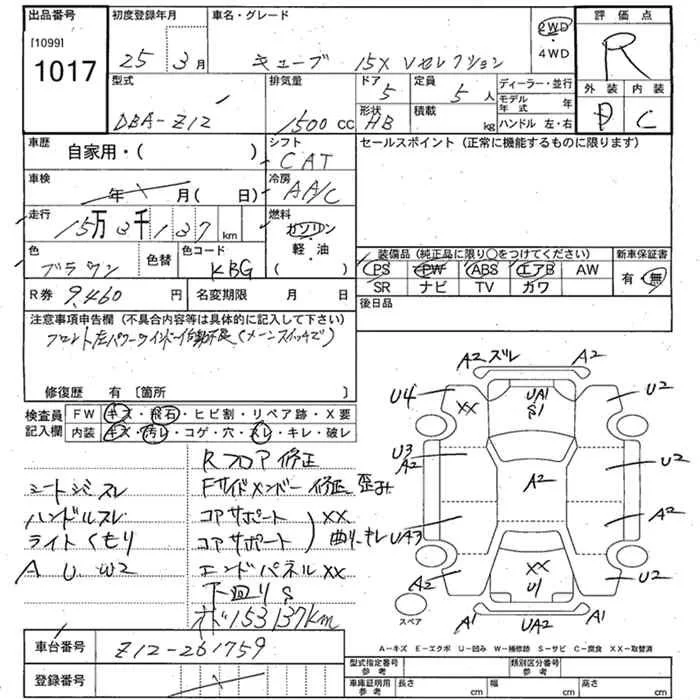 出品番号 初度登録年月 車名・グレード 評価点
[1099]
1017
25 3月 キューブ 15X Vセレクション 2WD・4WD R
型式 排気量 ドア 定員 ディーラー・並行 外装 内装
DBA-Z12 1500cc 5 5人 モデル年式 年 D C
形状 積載
HB kg ハンドル 左・右
車歴 シフト セールスポイント (正常に機能するものに限ります)
自家用・( ) CAT
車検 冷房
年 月 ( 日) AA/C
走行 燃料
15万3千137km ガソリン・軽・油 ( )
色 色替 色コード
ブラウン KBG
装備品 (純正品に限り○をつけてください) 新車保証書
PS PW ABS エアB AW 有・無
SR ナビ TV カワ
R券 9,460円 名変期限 月 日 後日品
注意事項申告欄 (不具合内容等は具体的に記入して下さい)
フロント左パワーウインドー作動不良(メーンスイッチで)
修復歴 有 〔箇所 〕
検査員記入欄
FW キズ・飛石・ヒビ割・リペア跡・X要
内装 キズ・汚レ・コゲ・穴・スレ・キレ・破レ
Rフロア修正
シートジミスレ Fサイドメンバー修正、歪み
ハンドルスレ コアサポート XX
ライトくもり コアサポート 曲り、キレ
A U W2 エンドパネルXX
下回りS
メ 153137km
A2 ズレ A2
U4 XX UA1 S1 U2
U3 A2 A2 U2
UA3 A2
A2 XX U1 U2
A1 UA2 A1
スペア
A-キズ E-エクボ U-凹み W-補修跡 S-サビ C-腐食 XX-取替済
車台番号 Z12-261759
登録番号
型式指定番号 参考 類別区分番号 参考
車庫証明用 参考 長さ cm 幅 cm 高さ cm